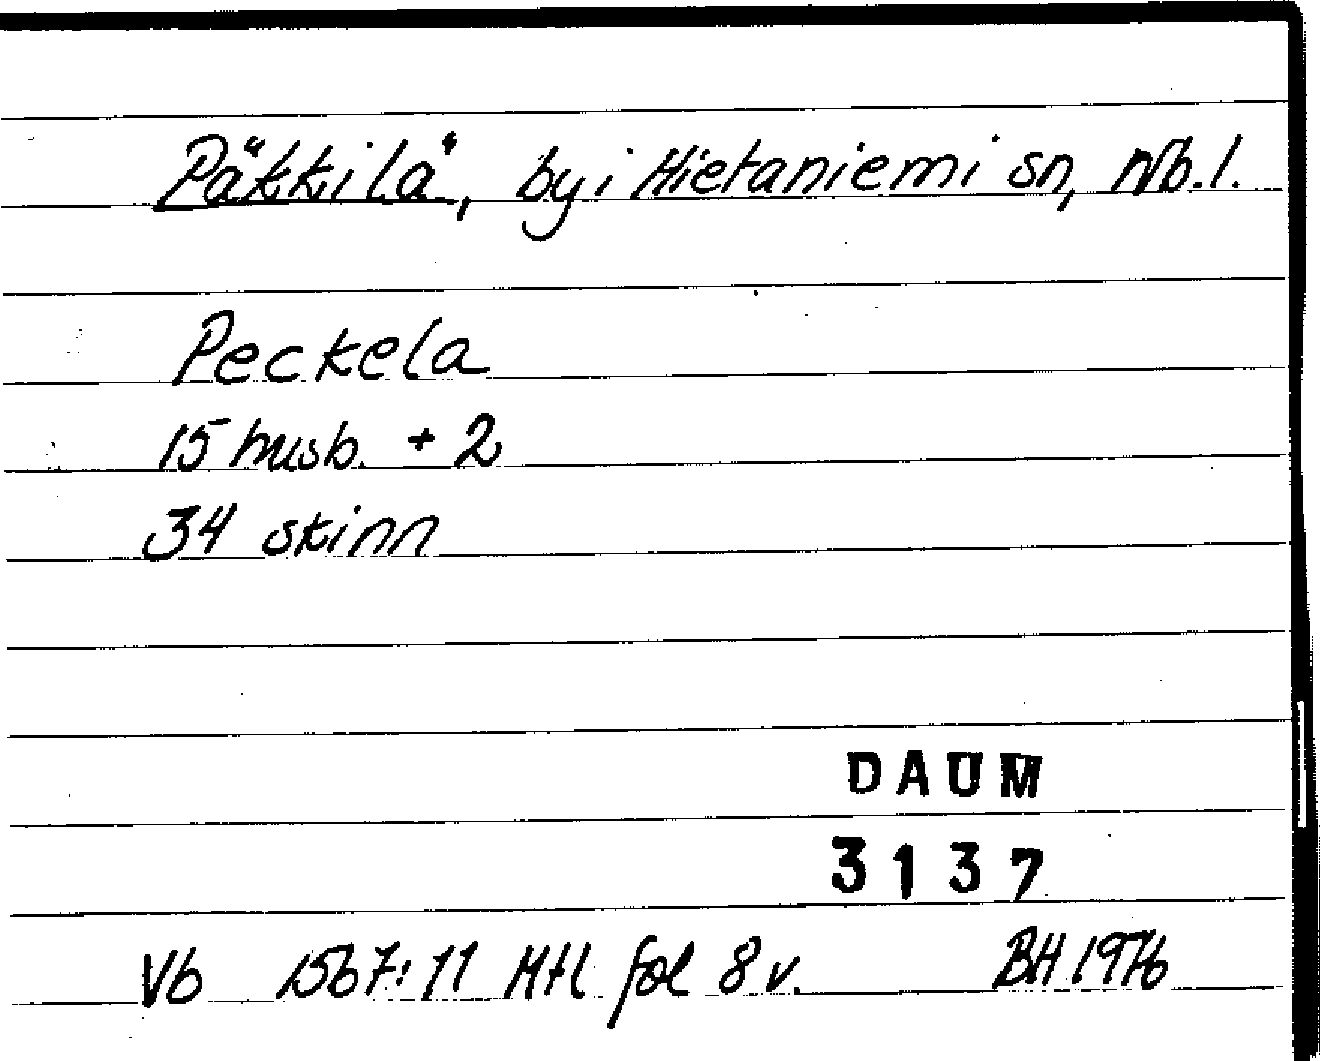 Päkkilä, by i Hietaniemi sn, Nb.l.
Peckela
15 husb. + 2
34 skinn
DAUM
3137
Vb 1567:11 Mtl fol 8 v. BH 1976